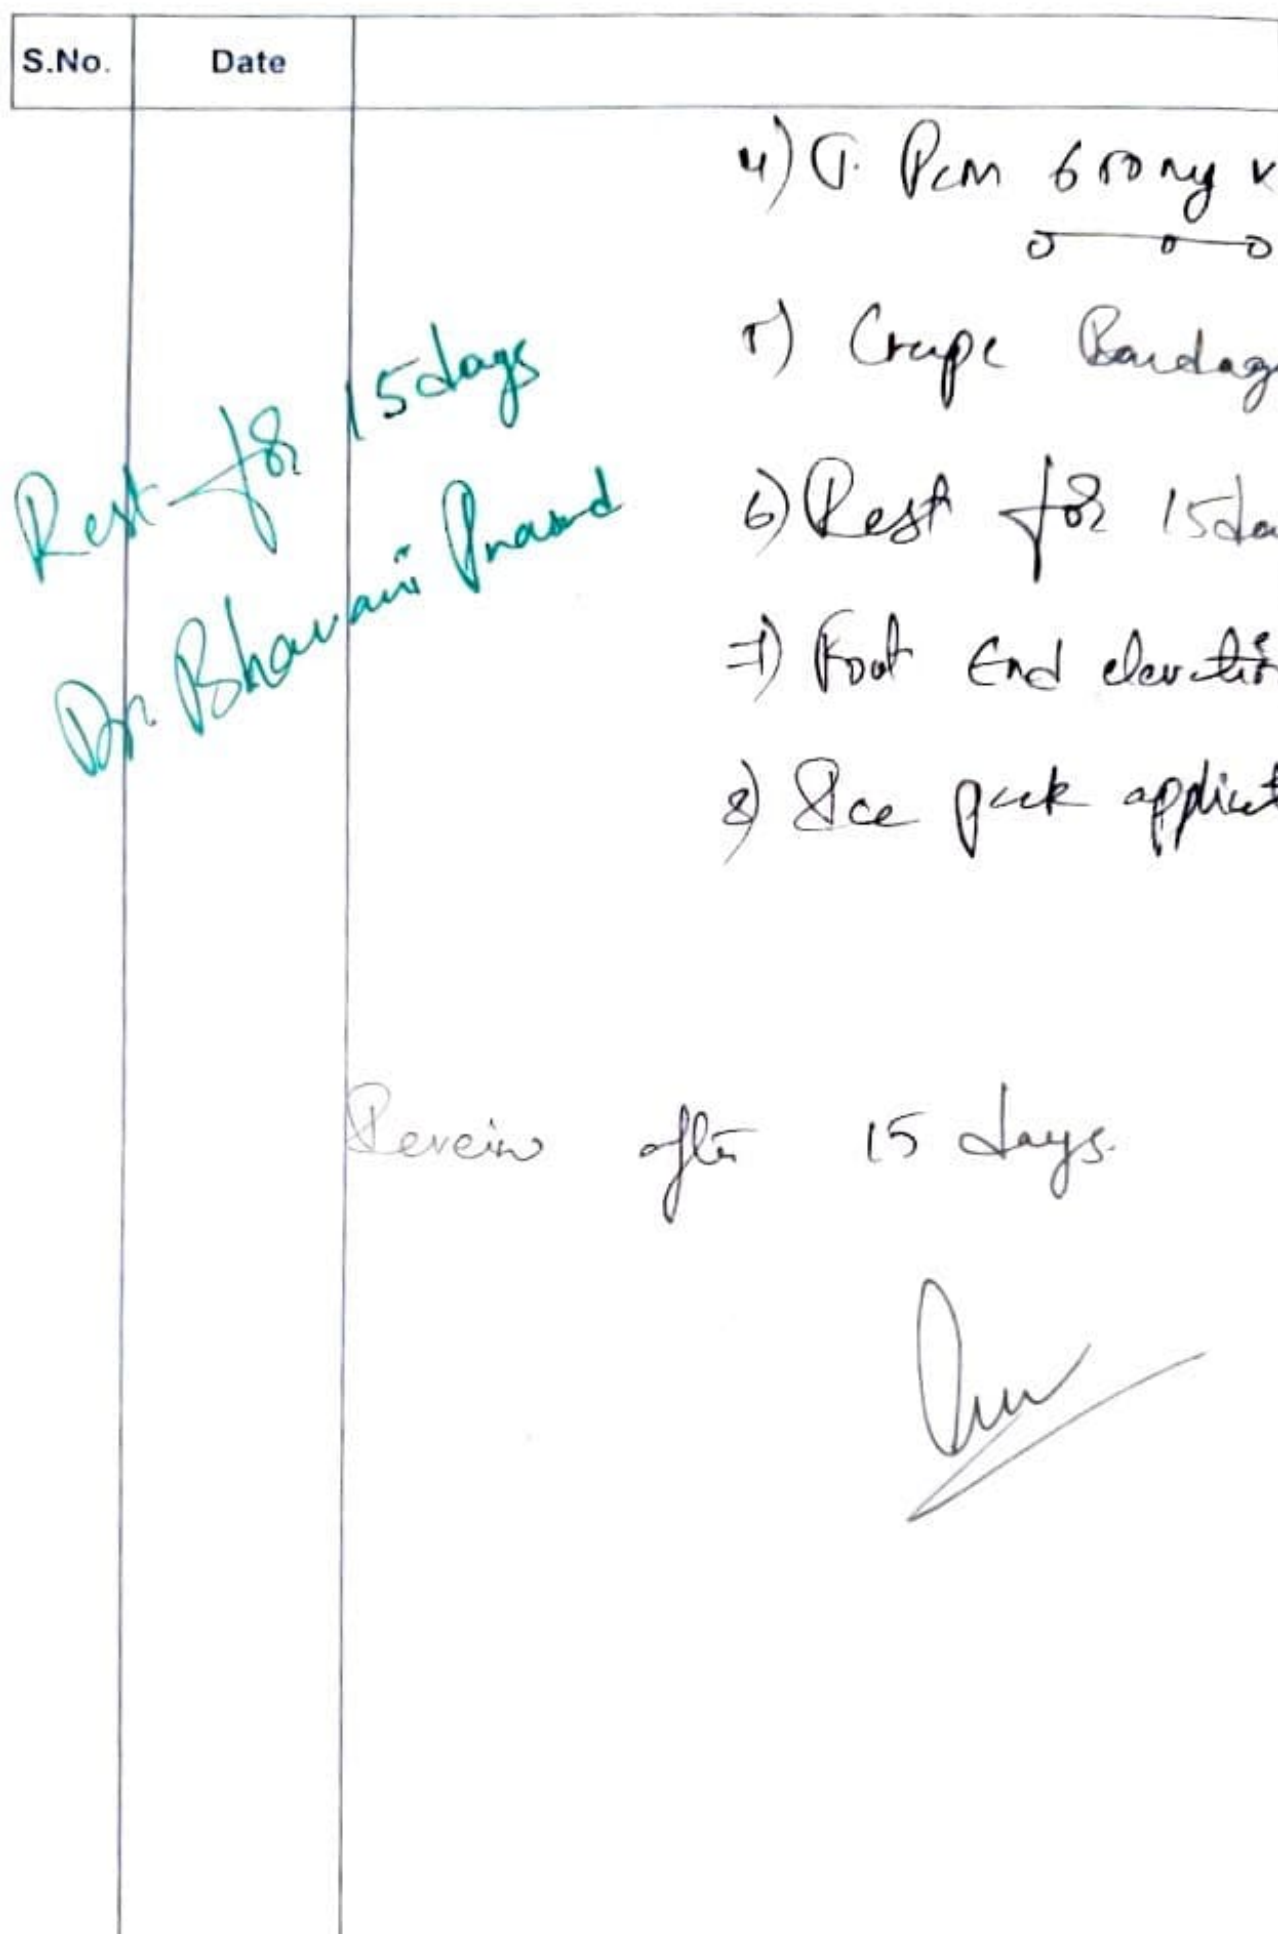 S.No. Date
4) T. Pcm 650 mg x
o—o—o
5) Crepe Bandag
6) Rest for 15da
7) Foot End elevatio
8) Ice pack applicat
Rest for 15 days
Dr. Bhavani Prasad
Review after 15 days.